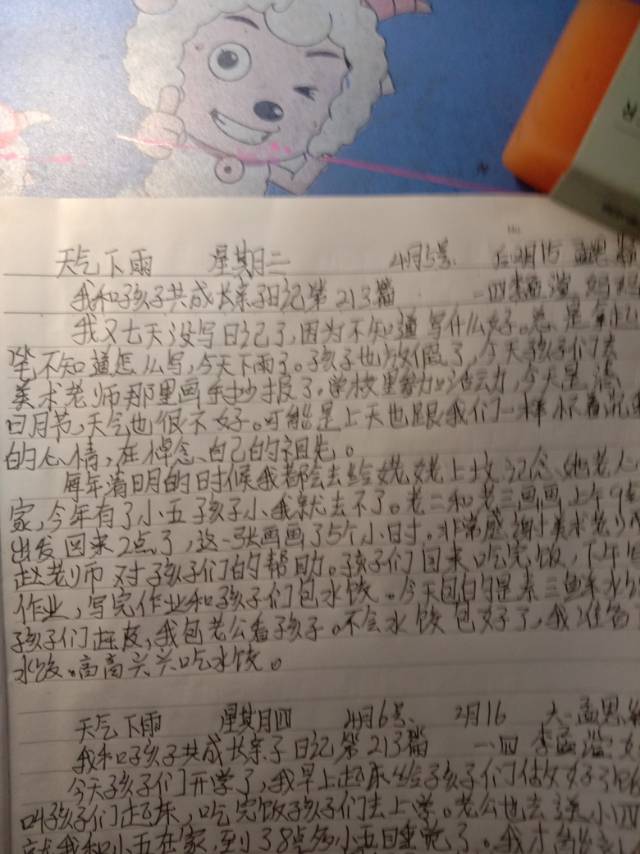 天气下雨 星期二 4月5号 后2月15
我和孩子共成长亲子日记第213篇 一四李孟滢 妈妈
我又七天没写日记了,因为不知道写什么好。总是拿起
笔不知道怎么写,今天下雨了。孩子也放假了,今天孩子们去
美术老师那里画手抄报了。学校里努力活动,今天是清
明节,天气也很不好。可能是上天也跟我们一样怀着沉重
的心情,在悼念自己的祖先。
每年清明的时候我都会去给姥姥上坟记念她老人
家,今年有了小五孩子小我就去不了。老二和老三画画上午9点
出发回来2点了,这一张画画了5个小时。非常感谢美术老师
赵老师对孩子们的帮助。孩子们回来吃完饭,下午写
作业,写完作业和孩子们包水饺。今天包的是素三鲜水饺
孩子们赶皮,我包老公看孩子。不会水饺包好了,我准备
水饺。高高兴兴吃水饺。
天气下雨 星期四 4月6号 2月16 大一孟
我和孩子共成长亲子日记第213篇 一四 李孟滢
今天孩子们开学了,我早上起来给孩子们做好了饭
叫孩子们起来,吃完饭孩子们去上学。老公也去送小四
就我和小五在家,到了8点多小五回睡觉了。我才